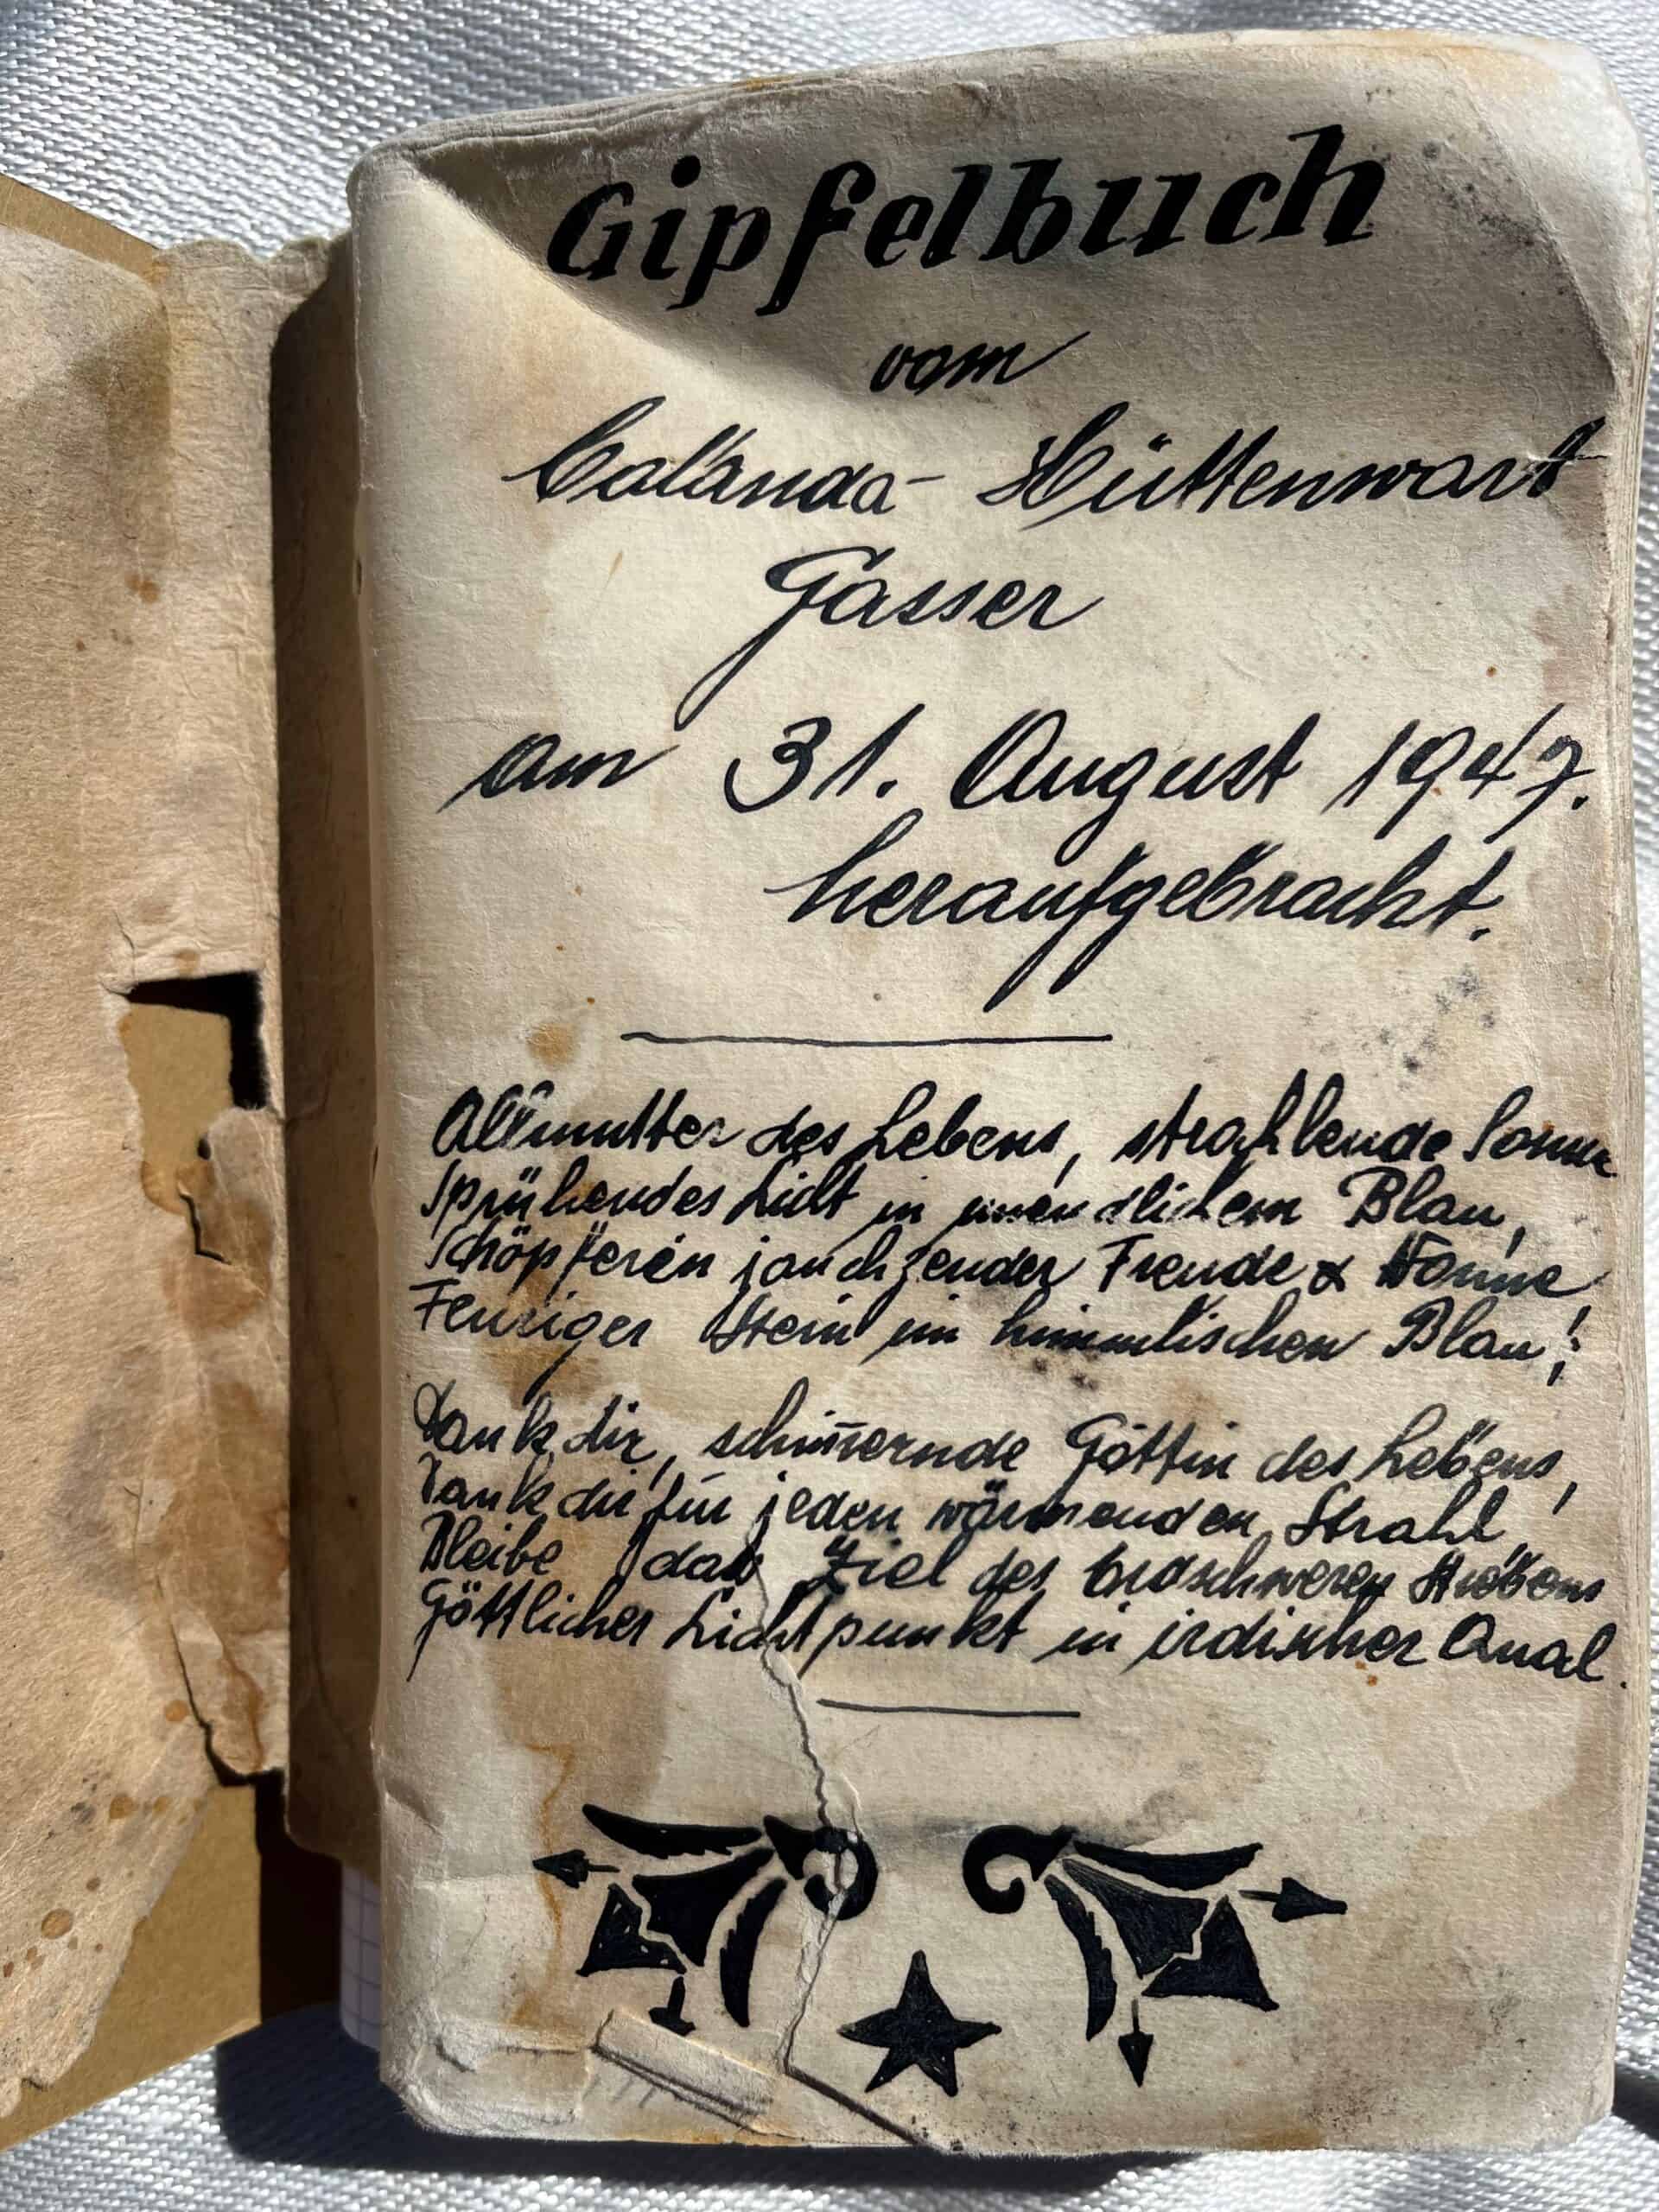 Gipfelbuch
vom
Calanda- Hüttenwart
Gasser
am 31. August 1947.
heraufgebracht.
Allmutter des Lebens, strahlende Sonne
Sprühendes Licht in unendlichem Blau,
Schöpferin jauchzender Freude & Wonne,
Feuriger Stein im himmlischen Blau!;
Dank dir, schim̄ernde Göttin des Lebens,
Dank dir für jeden wärmenden Strahl
Bleibe das Ziel des erdschweren Strebens
Göttlicher Lichtpunkt in irdischer Qual.